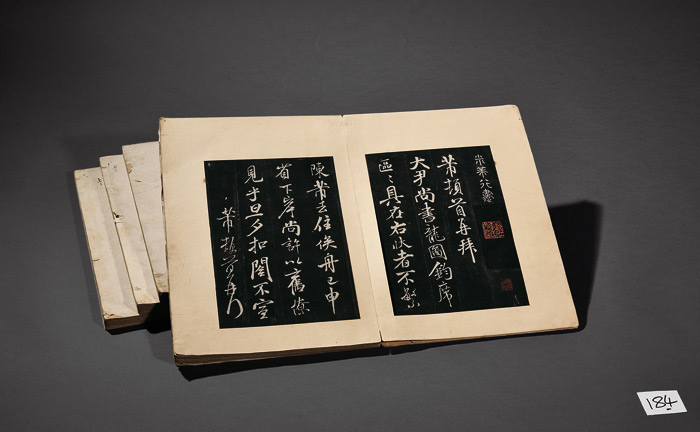 米芾行書
芾頓首再拜
大尹尚書龍圖鈞席
區〻具在右狀者不敏
陳芾去住俟舟已申
省下岸尚許以舊僚
見乎旦夕扣閤不宣
芾頓首再拜
184